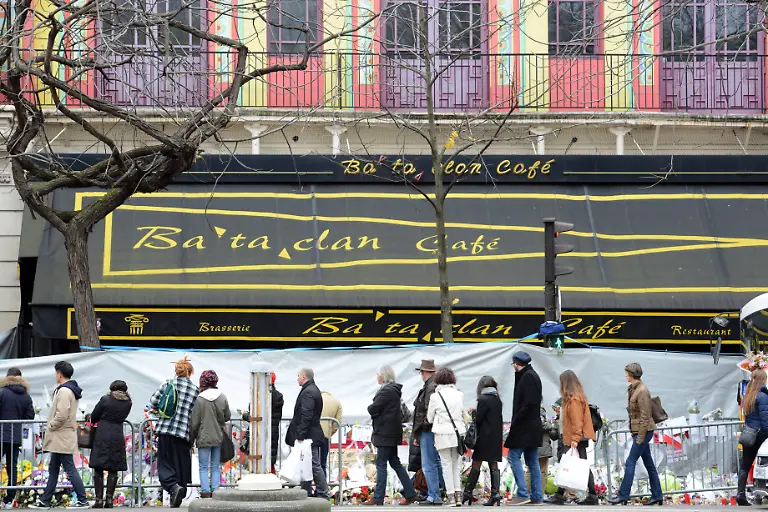 Ba'ta,clan Café
Ba'ta,clan Café
Brasserie Ba'ta,clan Café Restaurant